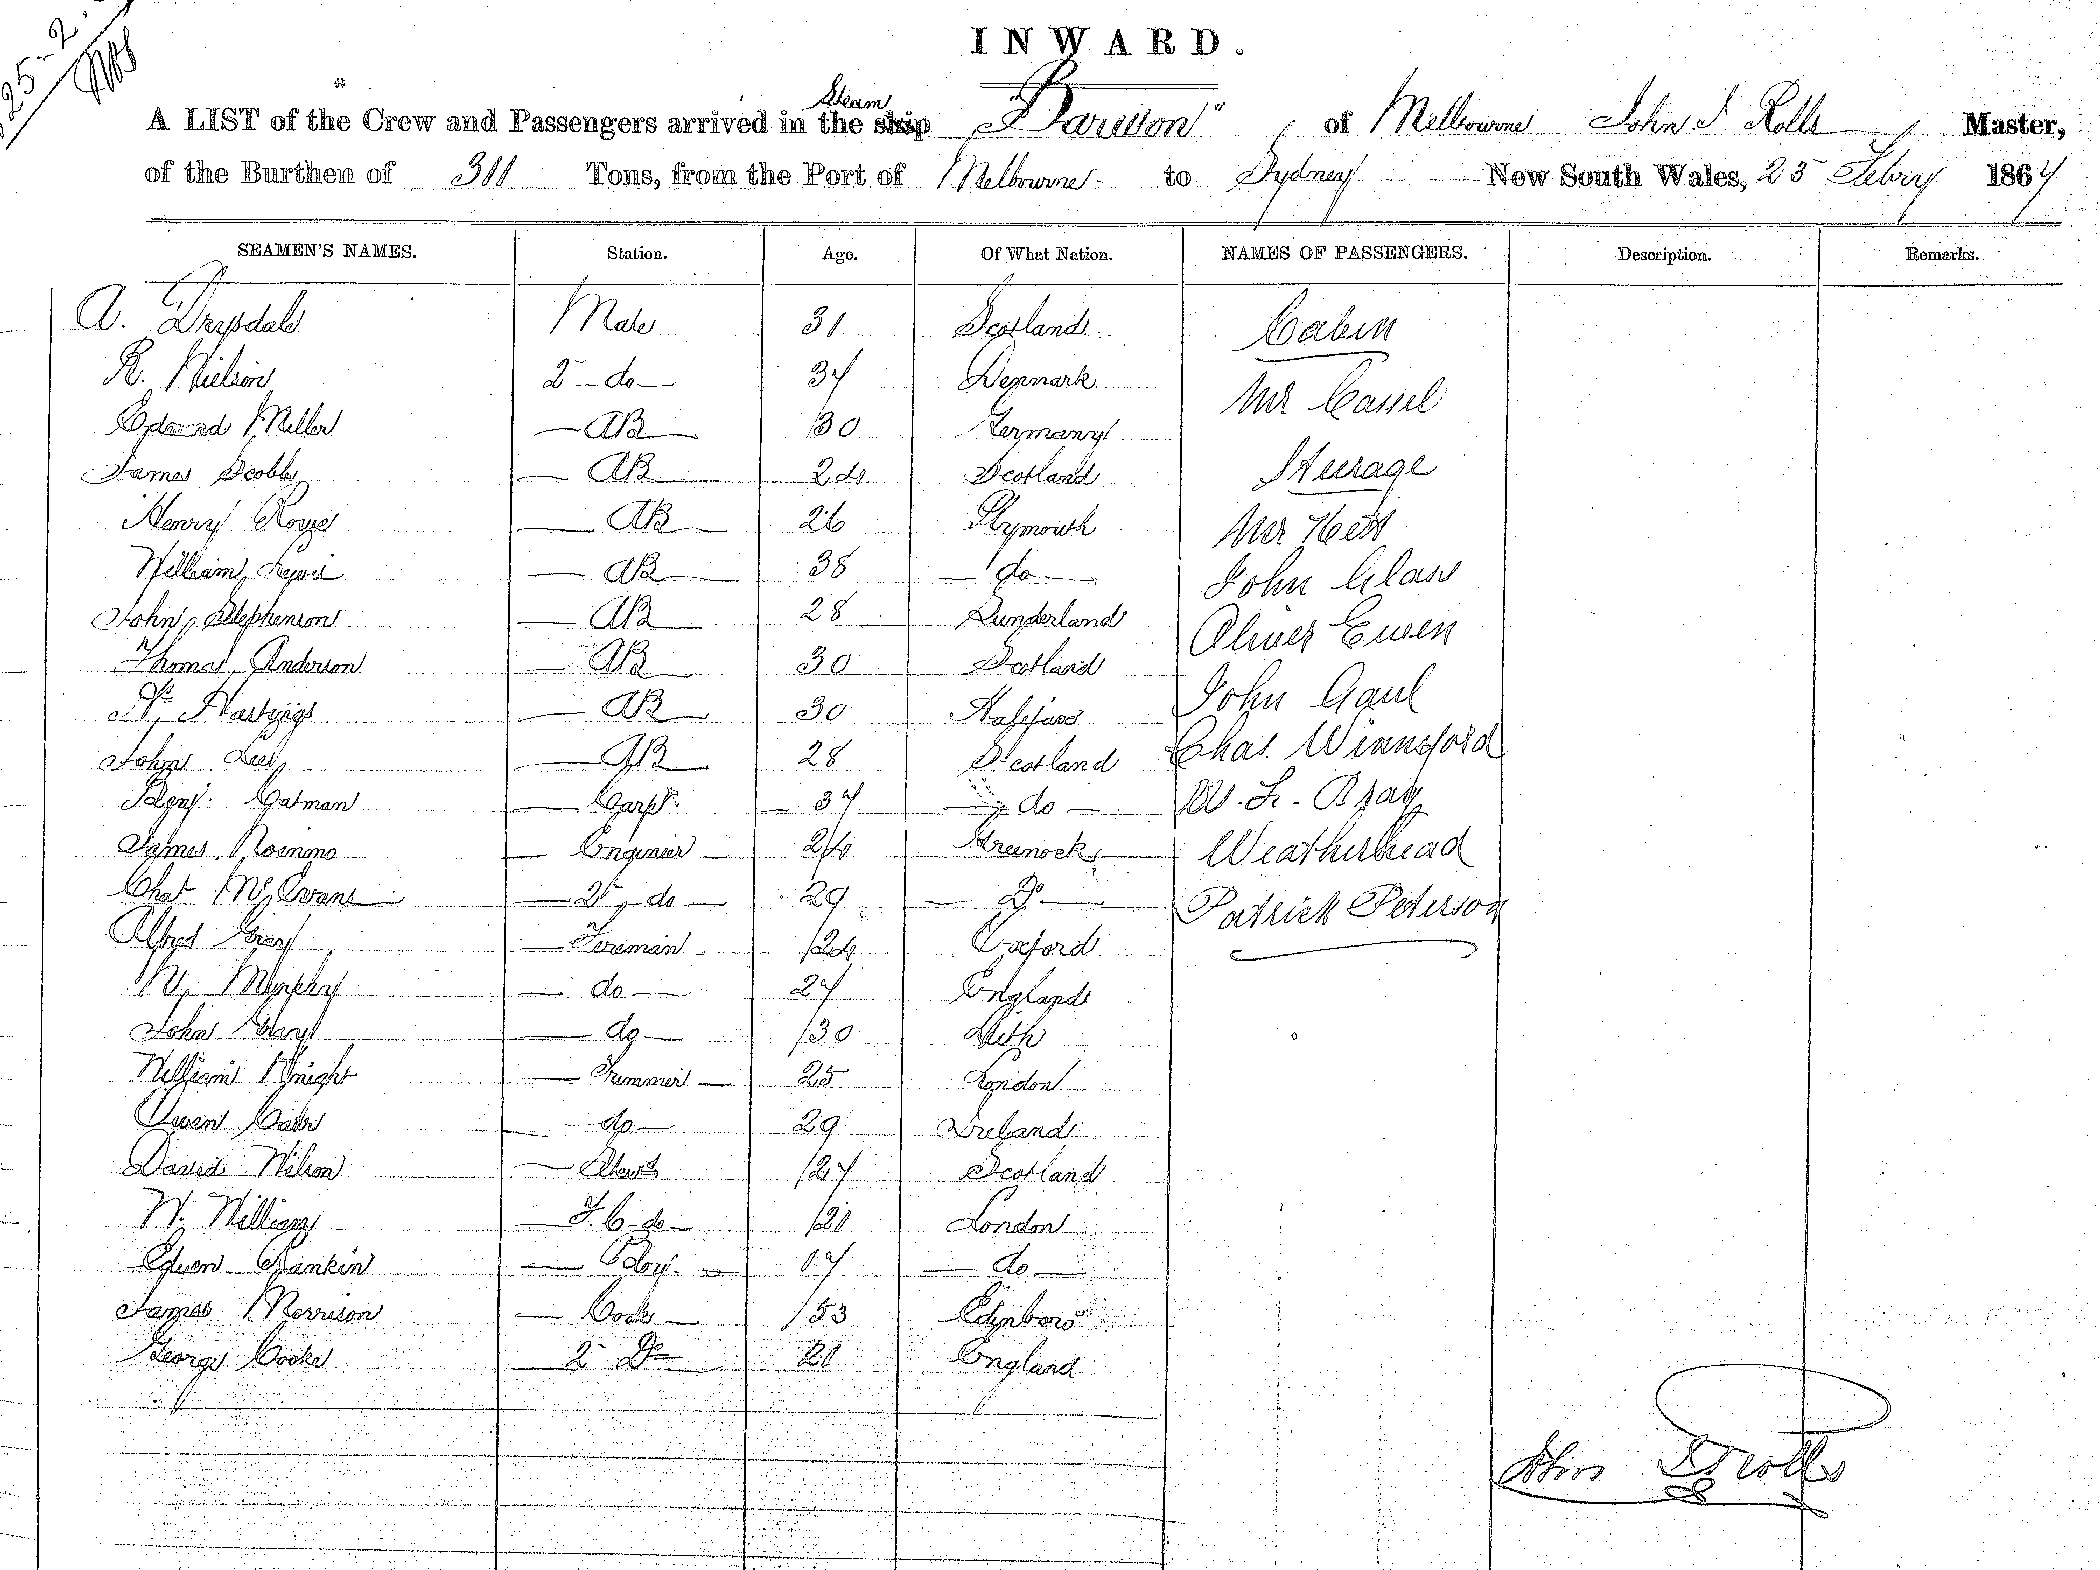 25-2
INWARD.
A LIST of the Crew and Passengers arrived in the Steam ship "Barwon" of Melbourne John S Rolls Master,
of the Burthen of 311 Tons, from the Port of Melbourne to Sydney New South Wales, 25 Febry 1867
SEAMEN'S NAMES. Station. Age. Of What Nation. NAMES OF PASSENGERS. Description. Remarks.
A. Drysdale Mate 31 Scotland Cabin
R. Nielson 2 do 37 Denmark Mr Cassel
Edward Miller AB 30 Germany
James Scobb AB 24 Scotland Steerage
Henry AB 26 Plymouth Mr Hett
William AB 38 do John Glass
John Stephenson AB 28 Sunderland Oliver Ewen
Thomas Anderson AB 30 Scotland
Hastings AB 30 Halifax John Gaul
John Lee AB 28 Scotland Chas. Winnsford
Benj. Catman Carpr 37 do W. L. Bray
James Engineer 26 Greenock Weatherhead
Chas McEvans 2 do 29 Do Patrick Peterson
Alfred Grey Fireman 24 Oxford
M. Murphy do 27 England
John Gray do 30 Leith
William Knight Trimmer 25 London
Owen do 29 Ireland
David Wilson Stewd 27 Scotland
W. Williams F. C. do 21 London
Edwen Rankin Boy 17 do
James Morrison Cook 53 Edinboro
George Cooke 2 Do 21 England
John S Rolls